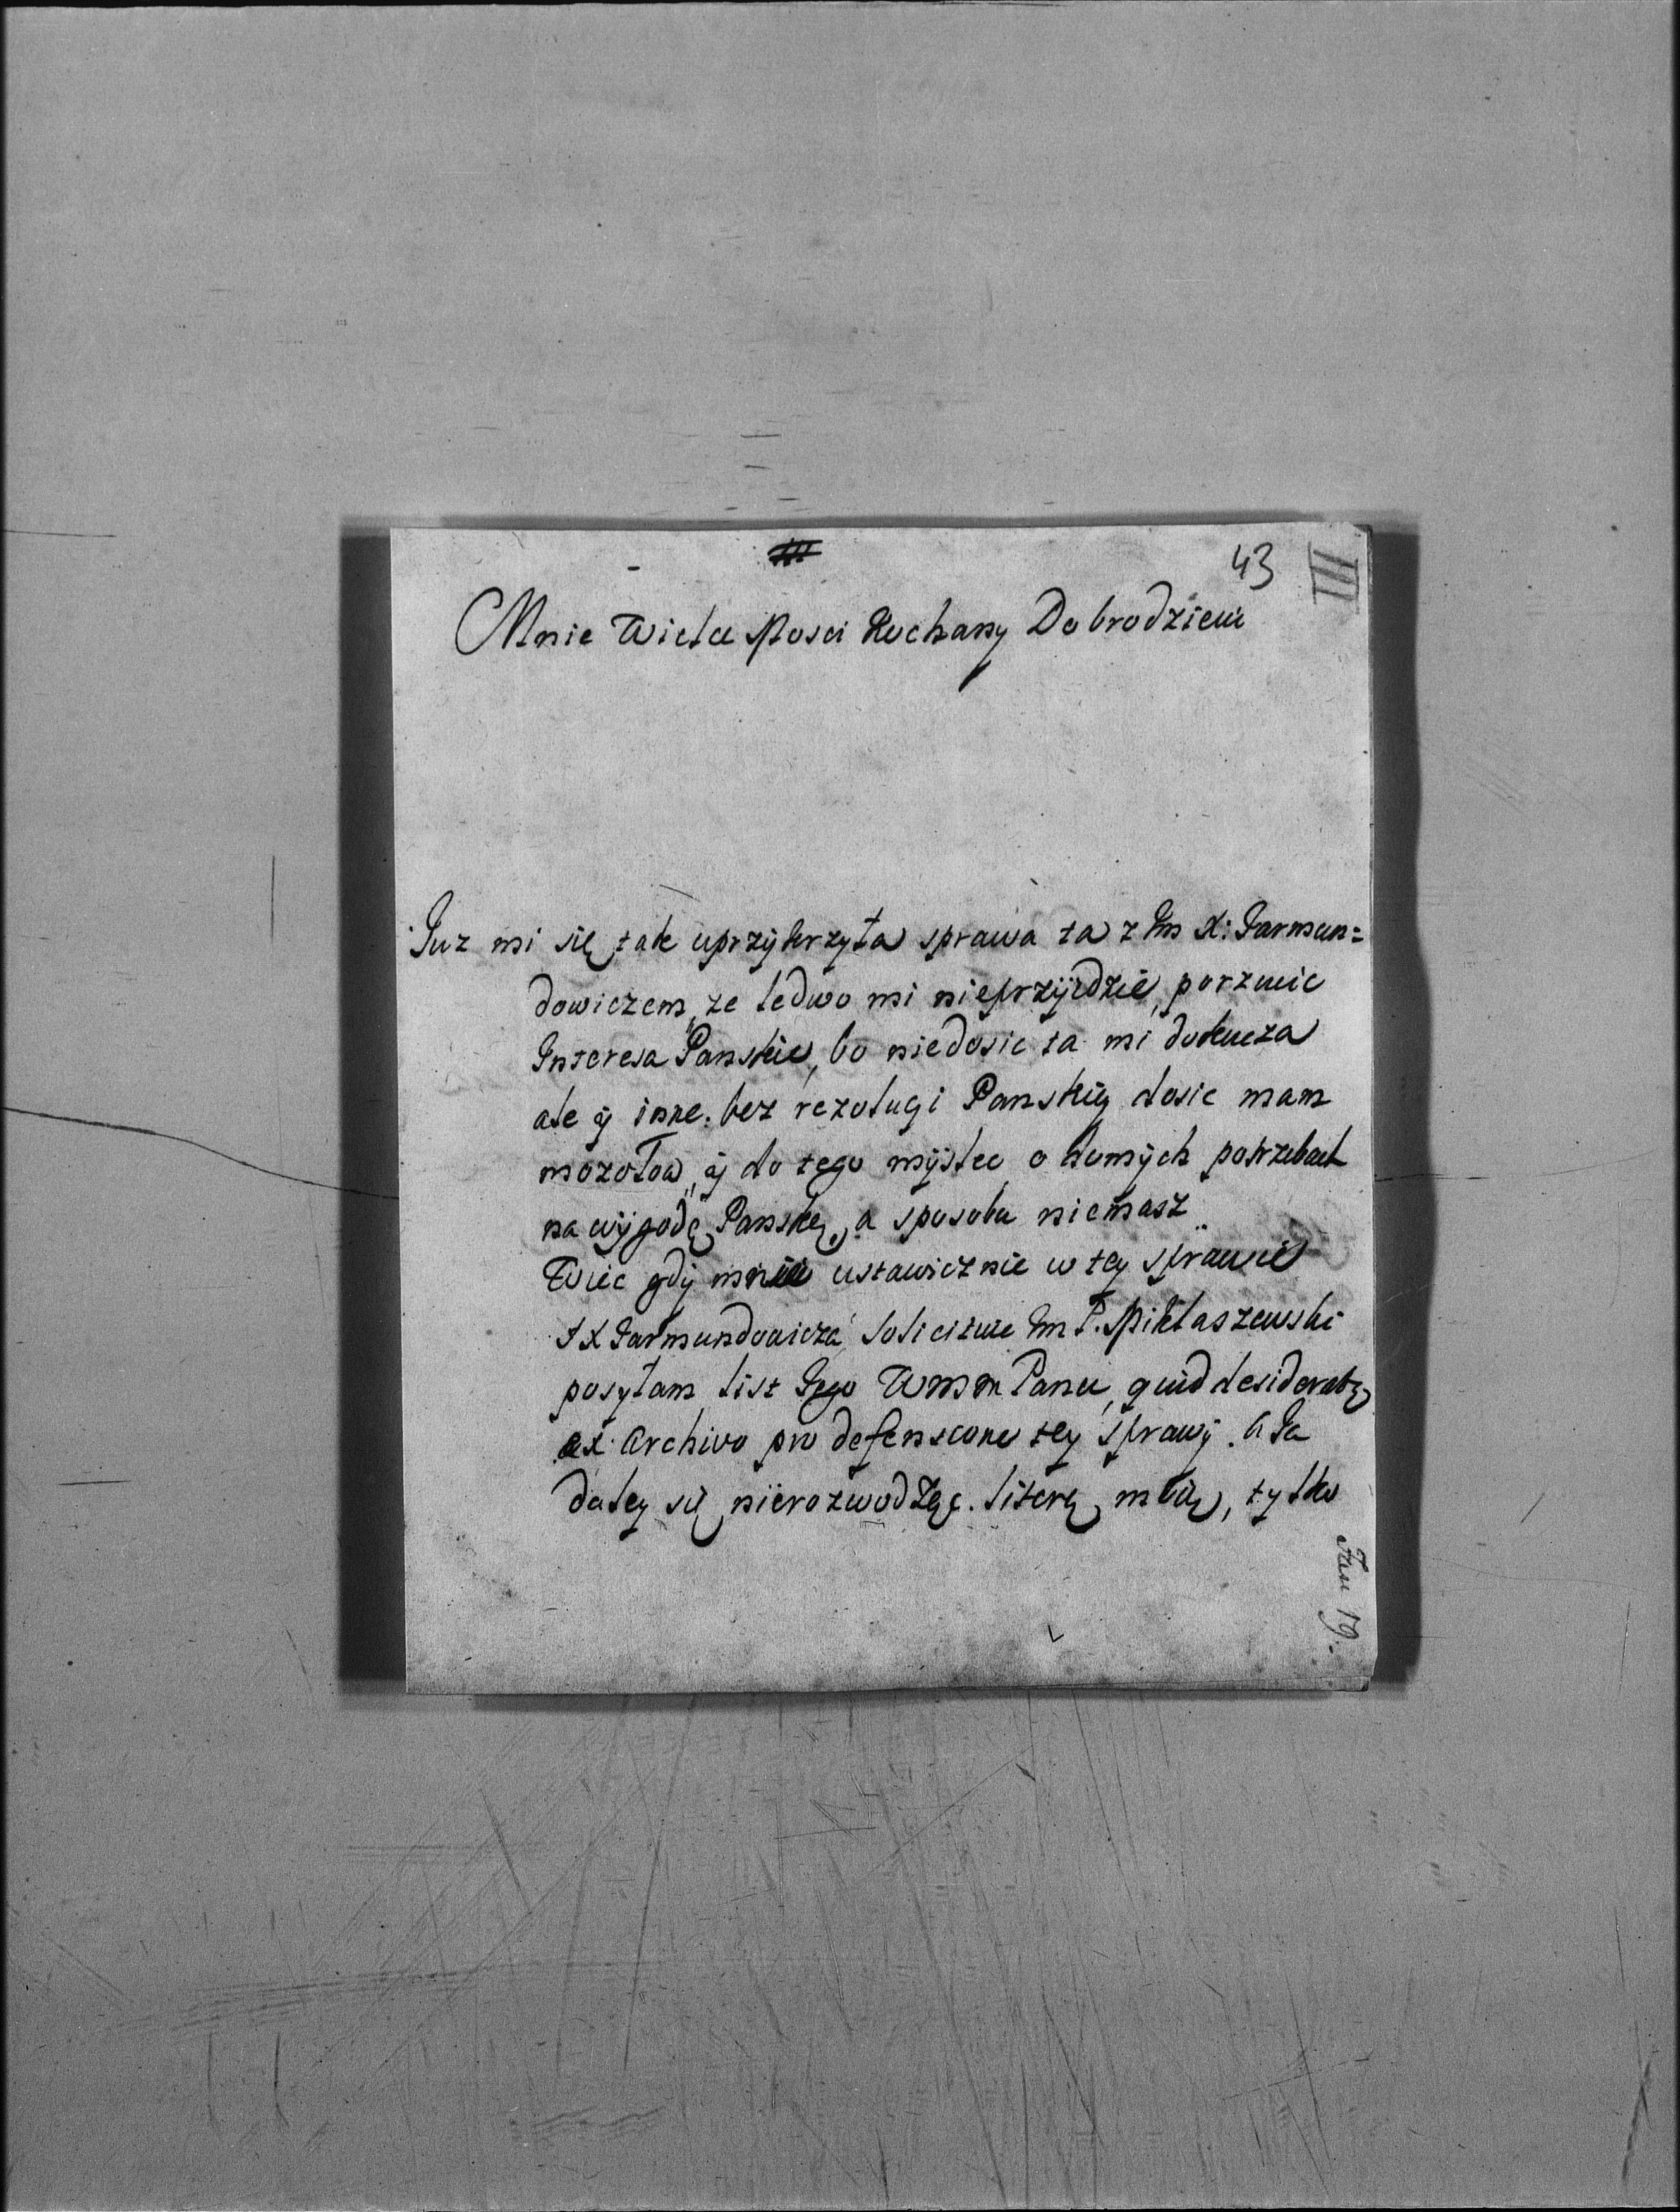 43
III
Mnie Wielce Mosci Kochany Dobrodzieiu
Juz mi się tak uprzykrzyła sprawa ta z Im X: Jarmun=
dowiczem, ze ledwo mi nieprzyidzie, porzucic
Interesa Panskie, bo niedosic ta mi dokucza
ale ÿ inne. bez rezolugi Panskiey dosic mam
mozołow, ÿ do tego myslec o domÿch potrzebach
na wÿgodę Panską, a sposobu niemasz
Więc gdÿ mnie ustawicznie w tey sprawie
JX Jarmundowicza solicituie Im P. Mikłaszewski
posyłam list Jego WMM Panu, quid desiderat
ex Archivo pro defensione tey sprawÿ. A Ja
daley się nierozwodząc. literą moią, tylko
Jan 19.